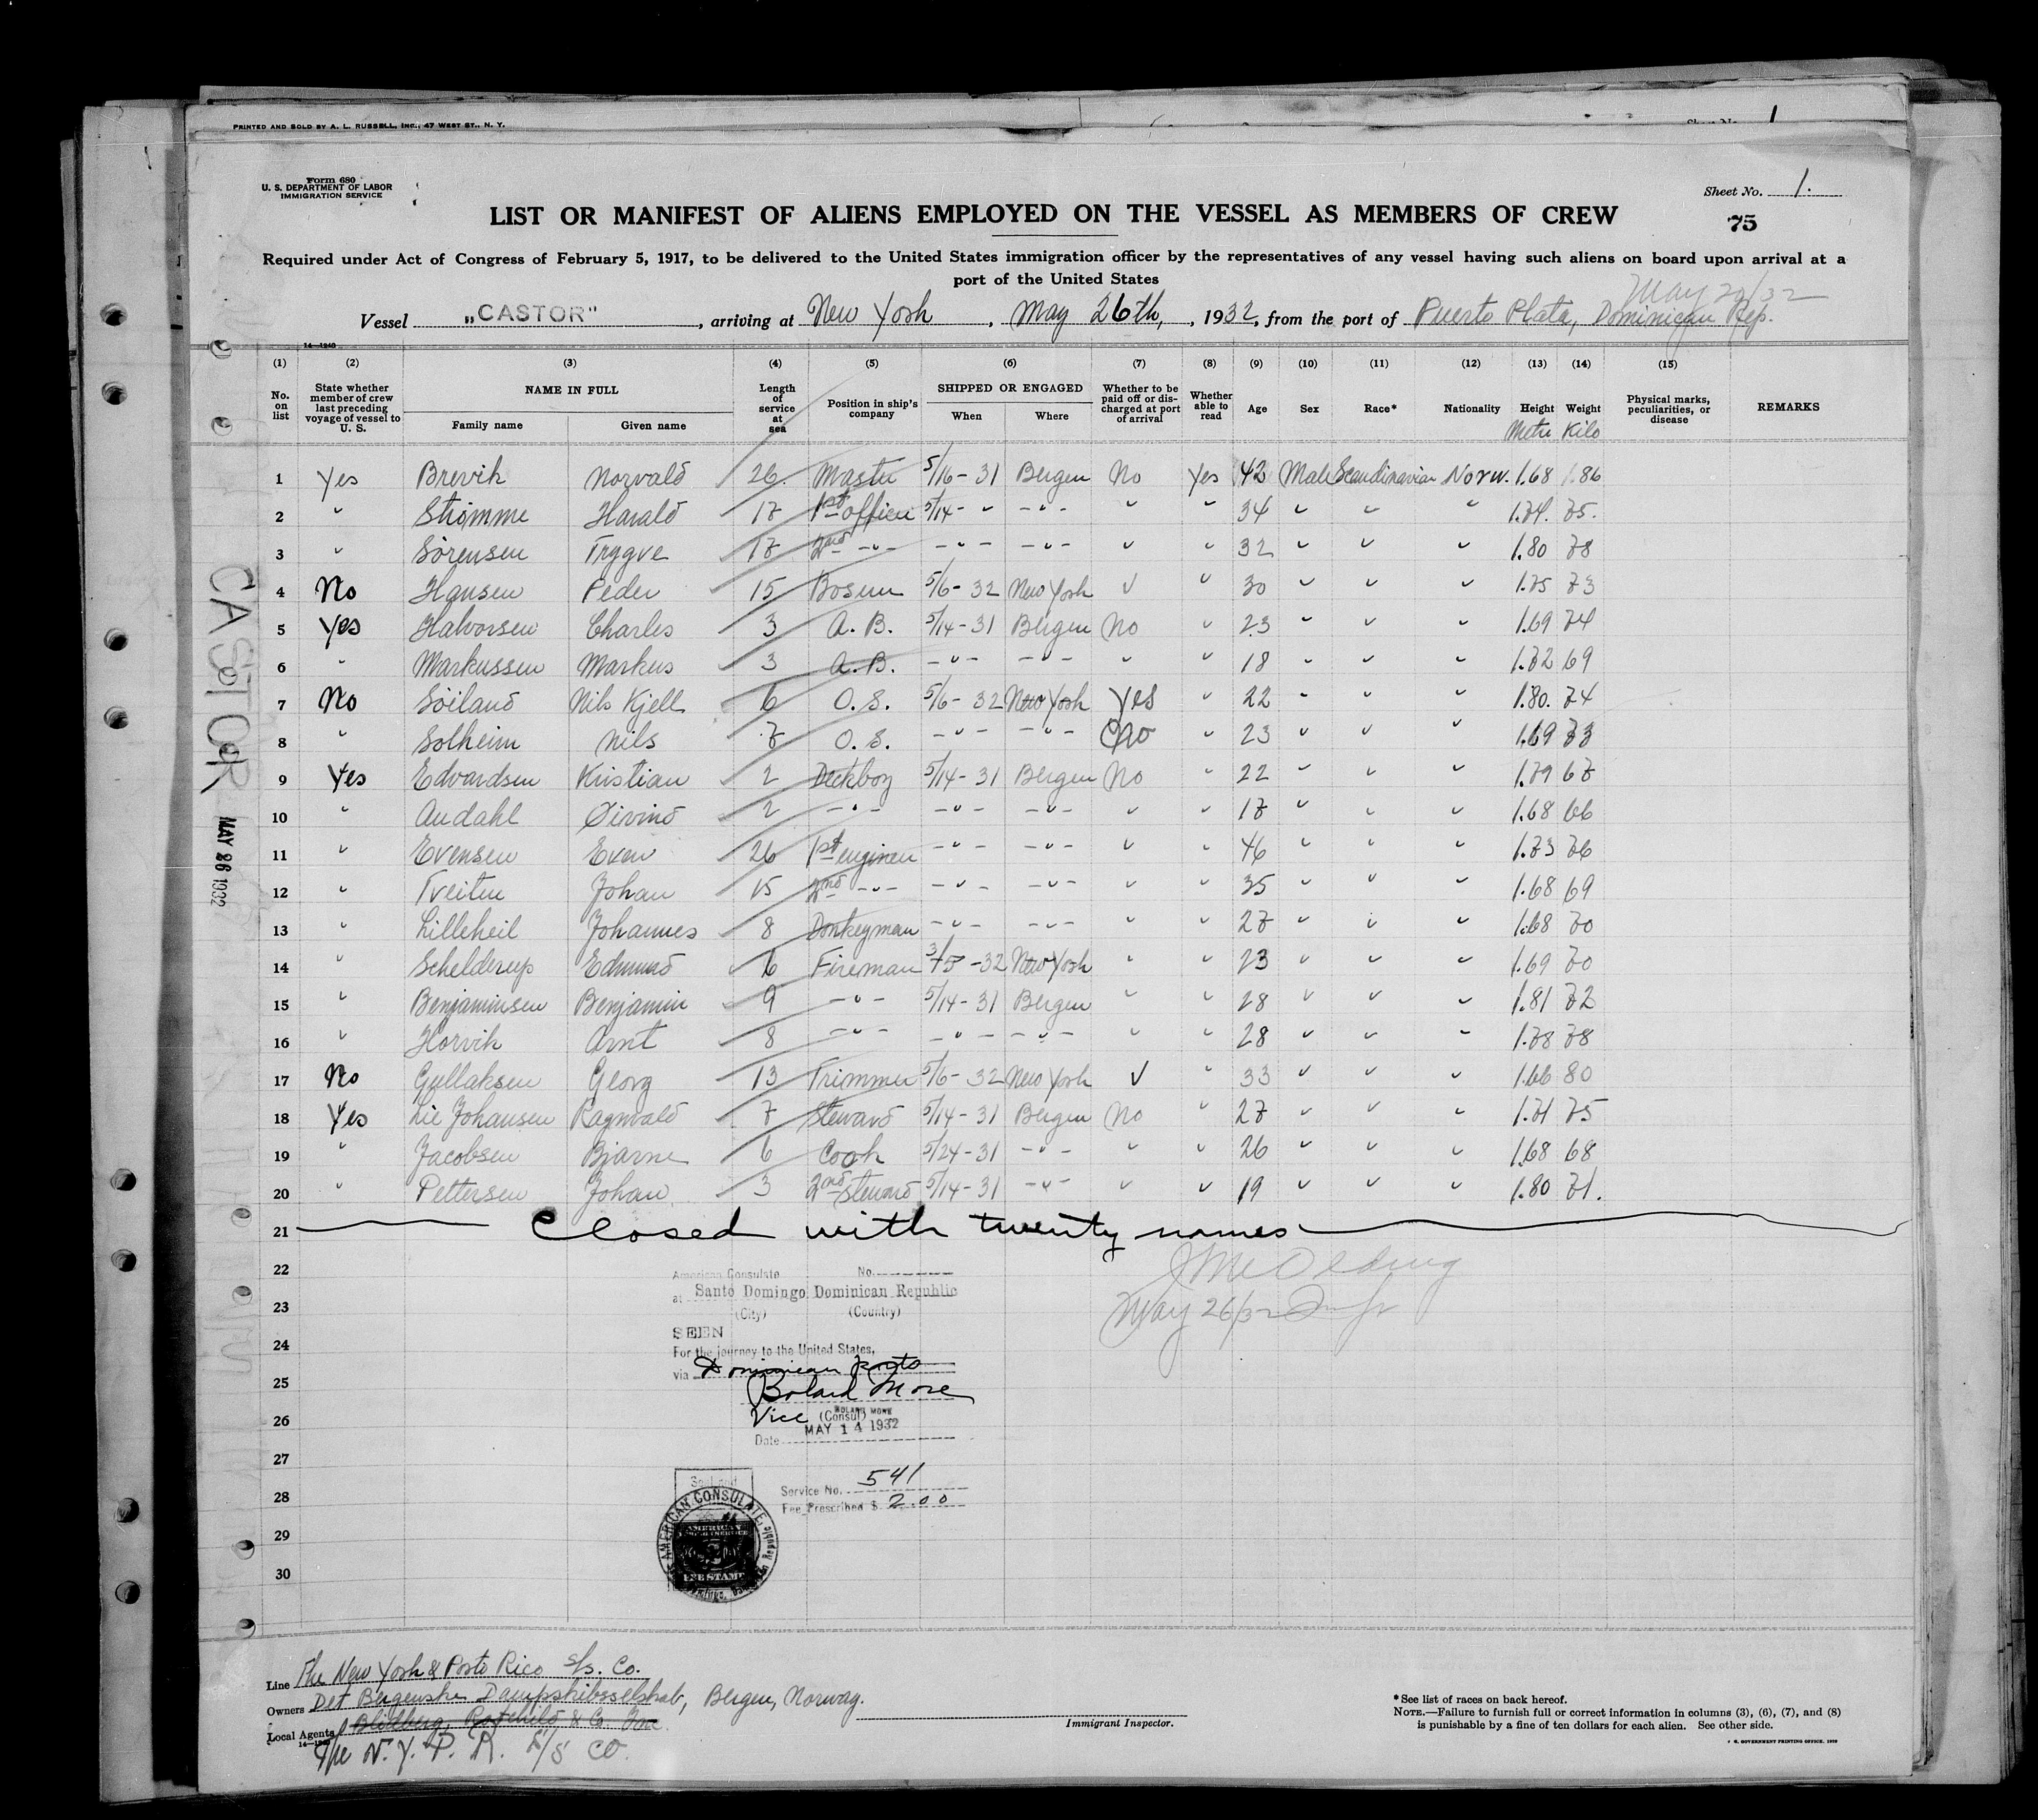 PRINTED AND SOLD BY A. L. RUSSELL, INC., 47 WEST ST., N. Y.
1
Form 680
U. S. DEPARTMENT OF LABOR
IMMIGRATION SERVICE
Sheet No. 1.
LIST OR MANIFEST OF ALIENS EMPLOYED ON THE VESSEL AS MEMBERS OF CREW
75
Required under Act of Congress of February 5, 1917, to be delivered to the United States immigration officer by the representatives of any vessel having such aliens on board upon arrival at a
port of the United States
May 20/32
Vessel „CASTOR", arriving at New York, May 26th, 1932, from the port of Puerto Plata, Dominican Rep.
14—1240
(1) (2) (3) (4) (5) (6) (7) (8) (9) (10) (11) (12) (13) (14) (15)
No. on list State whether member of crew last preceding voyage of vessel to U. S. NAME IN FULL Family name Given name Length of service at sea Position in ship's company SHIPPED OR ENGAGED When Where Whether to be paid off or discharged at port of arrival Whether able to read Age Sex Race* Nationality Height Metre Weight Kilo Physical marks, peculiarities, or disease REMARKS
1 Yes Brevik Norvald 26 Master 5/16-31 Bergen No Yes 42 Male Scandinavian Norw. 1.68 86
2 " Strömme Harald 17 1st officer 5/14- " -"- " " 34 " " " 1.74. 75.
3 " Sörensen Trygve 17 2nd -"- -"- -"- " " 32 " " " 1.80 78
4 No Hansen Peder 15 Bosun 5/6-32 New York ✓ " 30 " " " 1.75 73
5 Yes Halvorsen Charles 3 A. B. 5/14-31 Bergen No " 23 " " " 1.69 74
6 " Markussen Markus 3 A. B. -"- -"- " " 18 " " " 1.72 69
7 No Söiland Nils Kjell 6 O. S. 5/6-32 New York Yes " 22 " " " 1.80. 74
8 " Solheim Nils 7 O. S. -"- -"- No " 23 " " " 1.69 73
9 Yes Edvardsen Kristian 2 Deckboy 5/14-31 Bergen No " 22 " " " 1.79 67
10 " Audahl Øivind 2 -"- -"- -"- " " 17 " " " 1.68 66
11 " Evensen Even 26 1st engineer -"- -"- " " 46 " " " 1.73 76
12 " Tveiten Johan 15 2nd -"- -"- -"- " " 35 " " " 1.68 69
13 " Lilleheil Johannes 8 Donkeyman -"- -"- " " 27 " " " 1.68 70
14 " Schelderup Edmund 6 Fireman 3/5-32 New York " " 23 " " " 1.69 70
15 " Benjaminsen Benjamin 9 -"- 5/14-31 Bergen " " 28 " " " 1.81 72
16 " Horvik Arnt 8 -"- -"- -"- " " 28 " " " 1.78 78
17 No Gullaksen Georg 13 Trimmer 5/6-32 New York ✓ " 33 " " " 1.66 80
18 Yes Lie Johansen Ragnvald 7 Steward 5/14-31 Bergen No " 27 " " " 1.71 75
19 " Jacobsen Bjarne 6 Cook 5/24-31 -"- " " 26 " " " 1.68 68
20 " Pettersen Johan 3 2nd steward 5/14-31 -"- " " 19 " " " 1.80 71.
21 Closed with twenty names
22
23
24
25
26
27
28
29
30
CASTOR
MAY 26 1932
American Consulate No.
at Santo Domingo Dominican Republic
(City) (Country)
SEEN
For the journey to the United States,
via Dominican ports
Boland More
BOLAND MORE
Vice (Consul)
Date MAY 14 1932
May 26/32
Service No. 541
Fee Prescribed $ 2.00
AMERICAN CONSULATE
AMERICAN
FEE STAMP
Line The New York & Porto Rico S/s. Co.
Owners Det Bergenske Dampskibsselskab, Bergen, Norway.
Local Agents Blidberg, Rotchild & Co. Inc.
14—1240
The N. Y. P. R. S/S CO.
Immigrant Inspector.
*See list of races on back hereof.
NOTE.—Failure to furnish full or correct information in columns (3), (6), (7), and (8)
is punishable by a fine of ten dollars for each alien. See other side.
GOVERNMENT PRINTING OFFICE